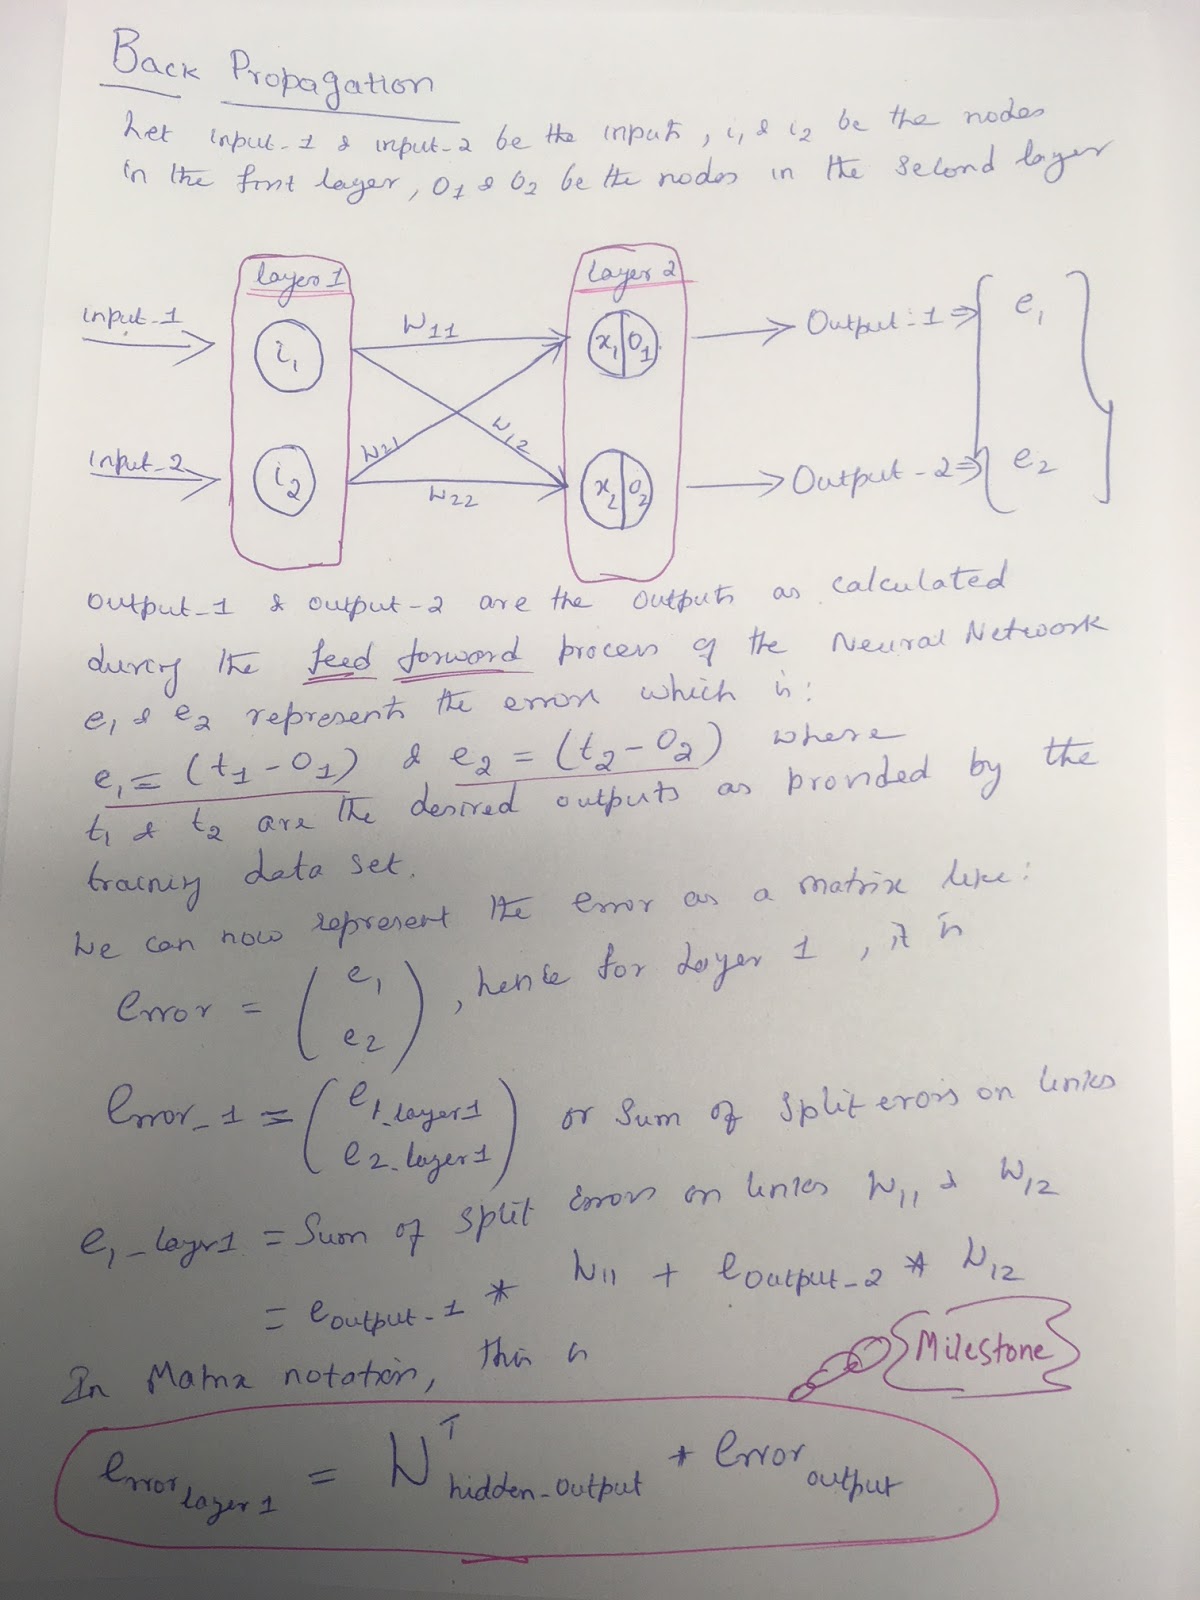 Back Propagation
Let input_1 & input_2 be the inputs, i1 & i2 be the nodes
in the first layer, O1 & O2 be the nodes in the second layer
layer 1
layer 2
input_1
i1
W11
x1 O1
Output_1 ⇒
e1
W21
W12
input_2
i2
W22
x2 O2
Output_2 ⇒
e2
output_1 & output_2 are the outputs as calculated
during the feed forward process of the Neural Network
e1 & e2 represents the errors which is:
e1 = (t1 - O1) & e2 = (t2 - O2) where
t1 & t2 are the desired outputs as provided by the
training data set.
We can now represent the error as a matrix like:
Error = ( e1 e2 ), hence for Layer 1, it is
Error_1 = ( e1_layer1 e2_layer1 ) or sum of split errors on links
e1_layer1 = Sum of split errors on links W11 & W12
= e output_1 * W11 + e output_2 * W12
In Matrix notation, this is
Milestone
error layer1 = W^T hidden_output * error output